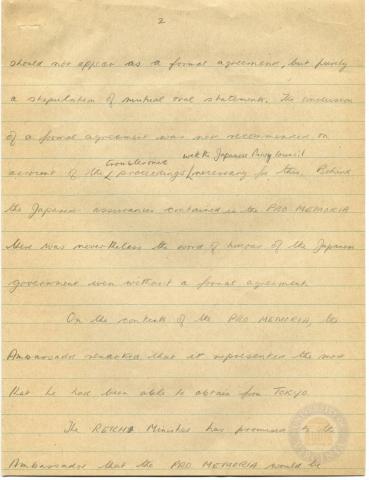 2
should not appear as a formal agreement, but purely
a stipulation of mutual oral statements. The conclusion
of a formal agreement was not recommended on
troublesome with the Japanese Privy Council
account of the proceedings necessary for this. Behind
the Japanese assurances contained in the PRO MEMORIA
there was nevertheless the word of honour of the Japanese
government even without a formal agreement.
On the contents of the PRO MEMORIA, the
Ambassador remarked that it represented the most
that he had been able to obtain from TOKYO
The REICHS Minister has promised to the
Ambassador that the PRO MEMORIA would be